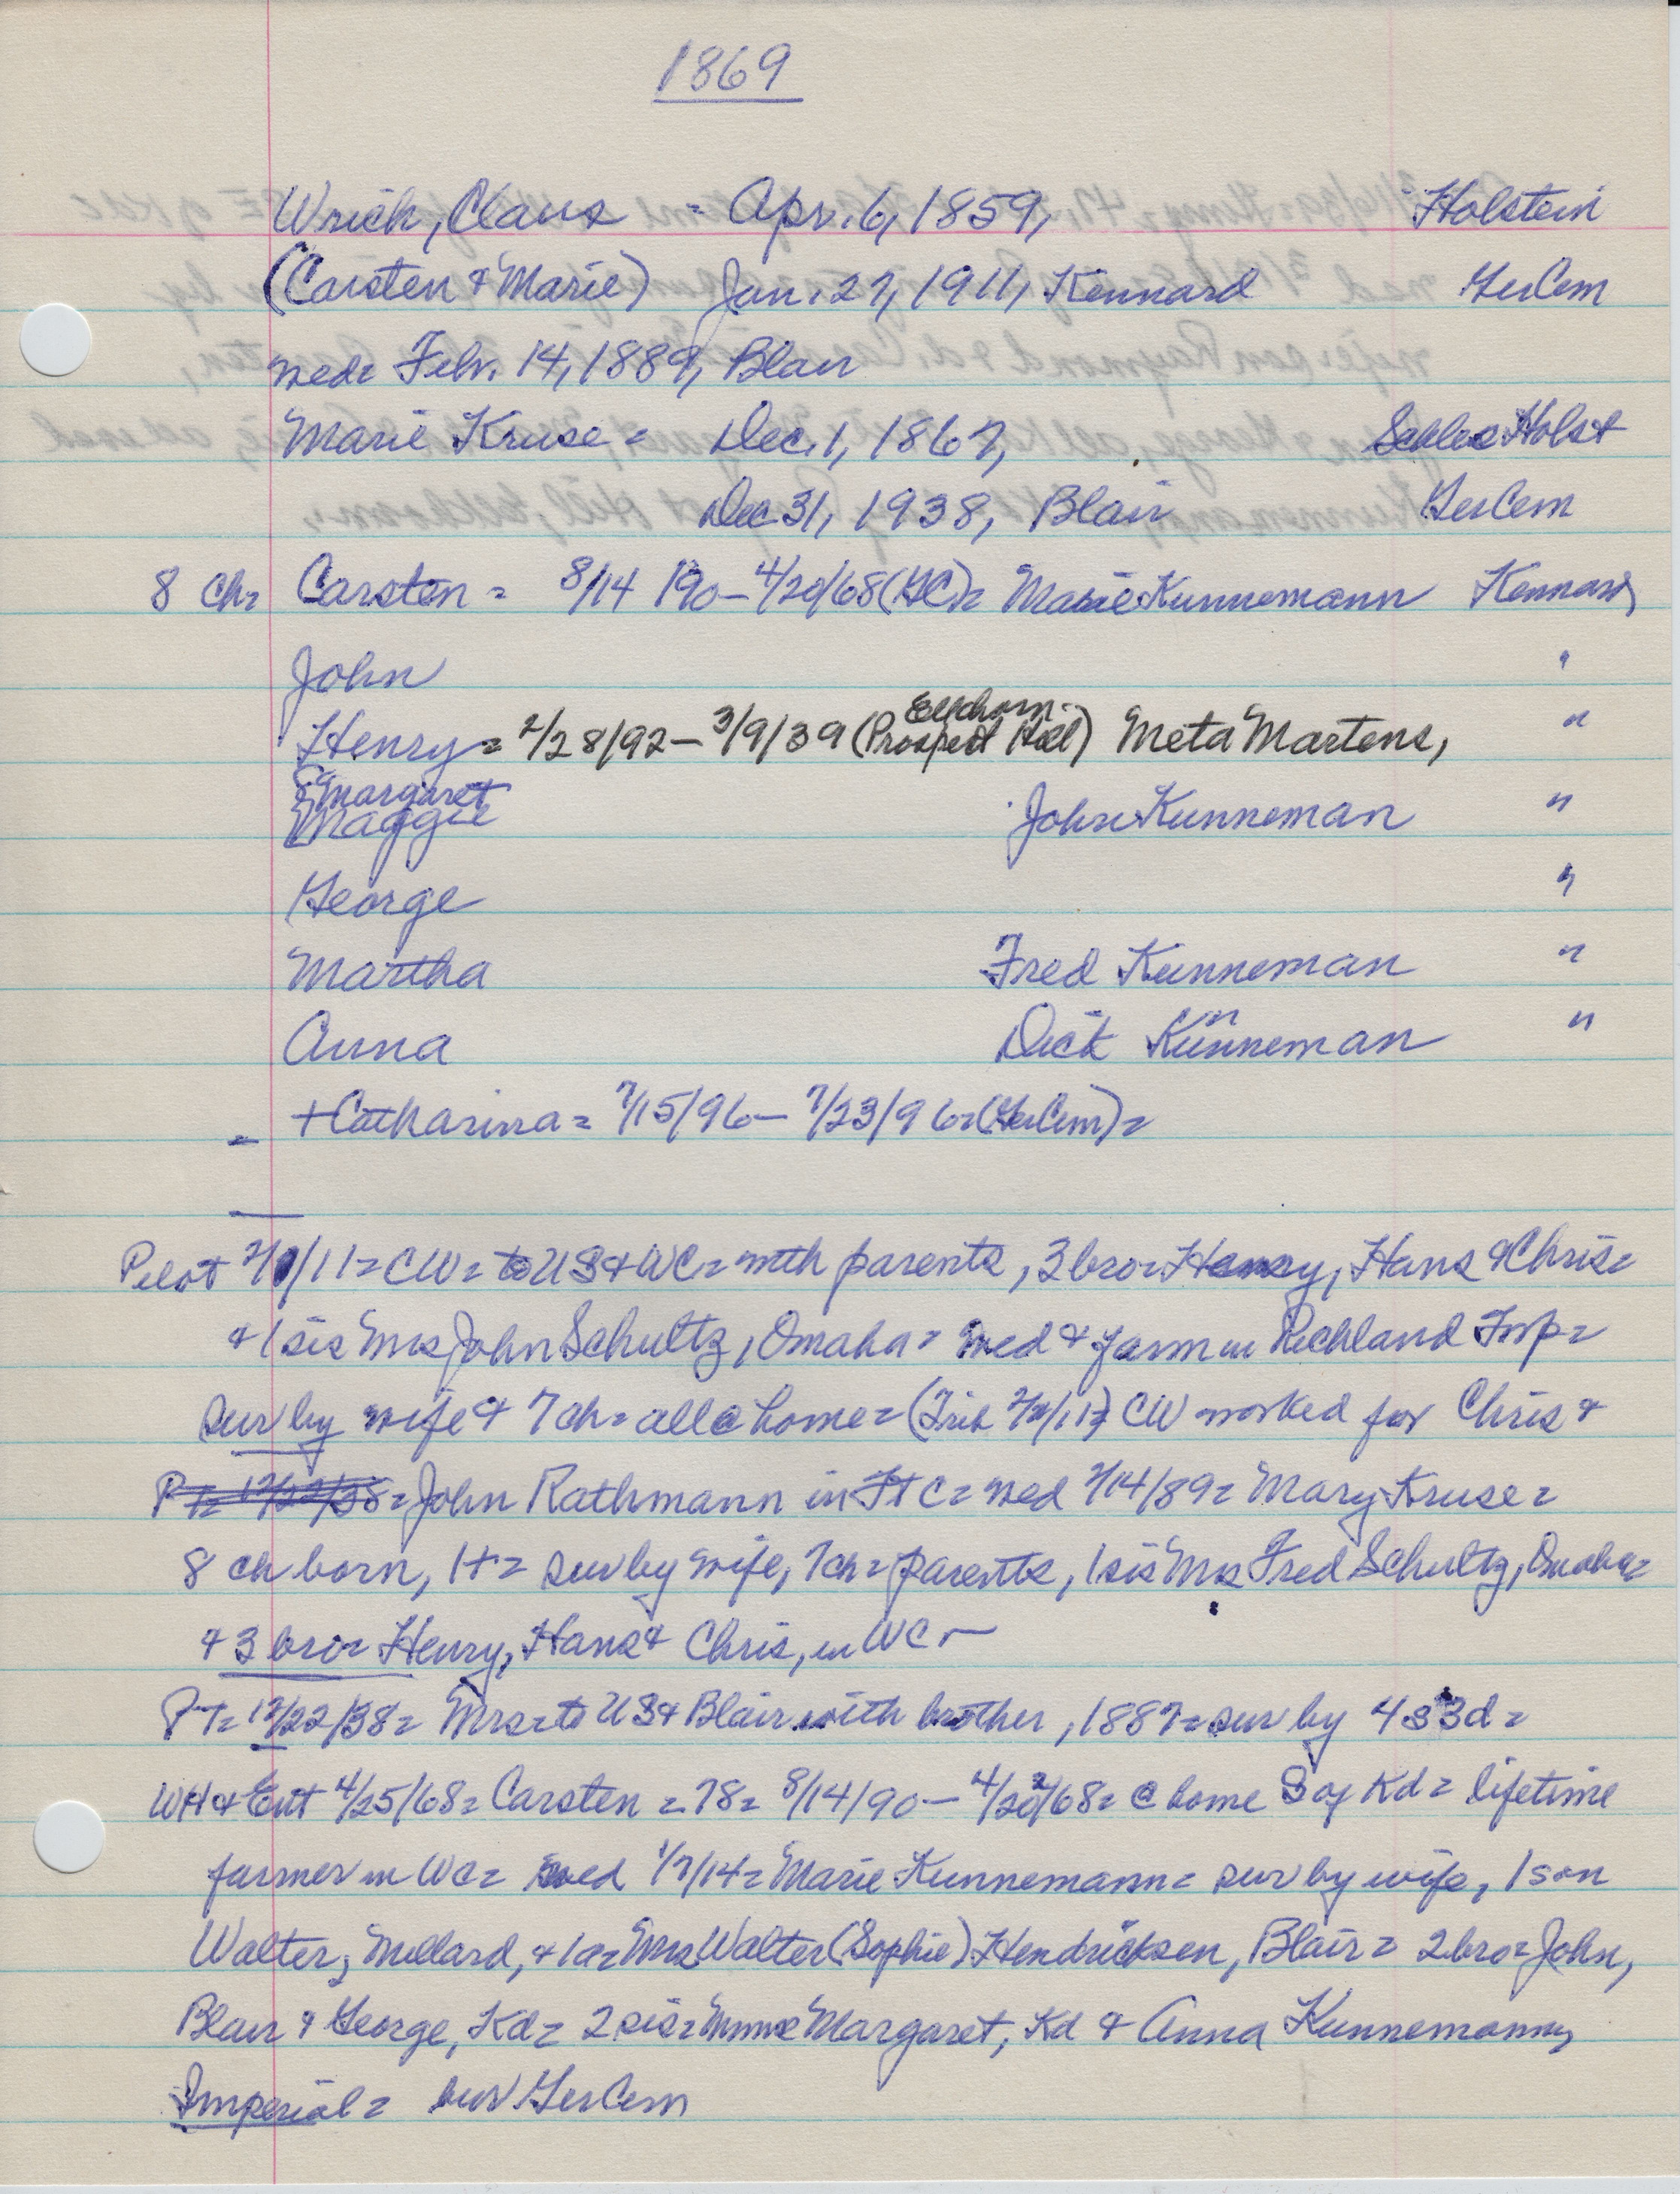 1869
Wrich, Claus = Apr. 6, 1859, Holstein
(Carsten & Marie) Jan. 27, 1911, Kennard GerCem
med= Feb. 14, 1889, Blair
Marie Kruse = Dec. 1, 1867, Schles Holst
Dec 31, 1938, Blair GerCem
8 Ch= Carsten = 8/14/90 - 4/20/68 (GC)= Marie Kunnemann Kennard,
John "
Elkhorn
Henry = 2/28/92 - 3/9/39 (Prospect Hill) Meta Martens, "
Margaret
Maggie John Kunneman "
George "
Martha Fred Kunneman "
n
Anna Dick Kunneman "
+Catharina = 7/15/96 - 7/23/96 = (GerCem) =
Pilot /11= CW= to US & WC= with parents, 3 bro= Henry, Hans & Chris=
& 1 sis Mrs John Schultz, Omaha = med & farm in Richland Twp=
sur by wife & 7 ch= all @ home= (Trib /11) CW worked for Chris &
PT= 12/22/38= John Rathmann in Ft C= med 2/14/89= Mary Kruse=
8 ch born, 1+= sur by wife, 7 ch= parents, 1 sis Mrs Fred Schultz, Omaha=
& 3 bro= Henry, Hans & Chris, in WC
PT= 12/22/38= Mrs= to US & Blair with brother, 1887= sur by 4 s 3 d=
WH & Ent 4/25/68= Carsten = 78= 8/14/90 - 4/20/68= @ home S of Kd= lifetime
farmer in WC= med 1/7/14= Marie Kunnemann= sur by wife, 1 son
Walter, Millard, & 1 d= Mrs Walter (Sophie) Hendricksen, Blair= 2 bro= John,
Blair & George, Kd= 2 sis= Mmes Margaret, Kd & Anna Kunnemann,
Imperial= bur GerCem